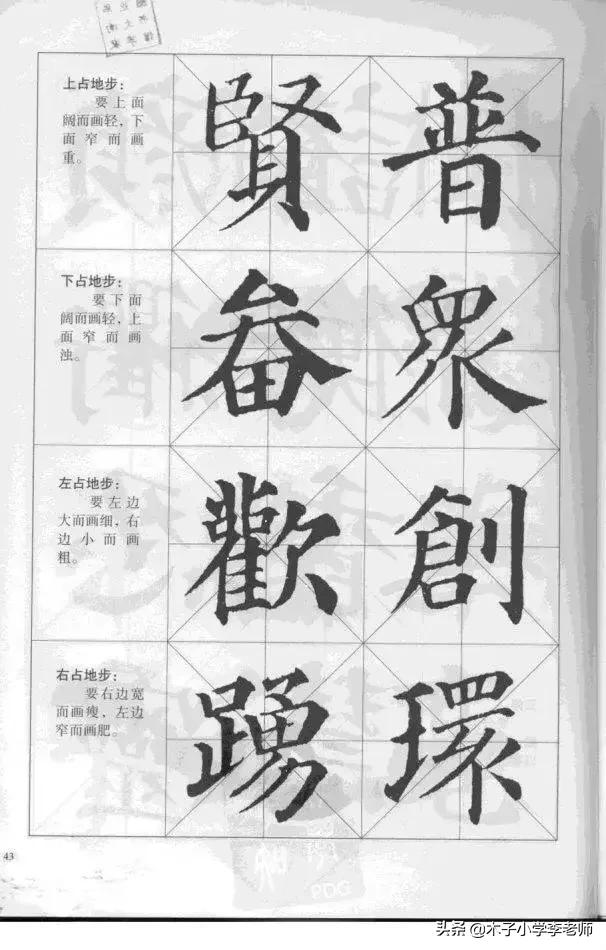 上占地步：
要上面
阔而画轻，下
面窄而画
重。
賢 普
下占地步：
要下面
阔而画轻，上
面窄而画
浊。
畚 衆
左占地步：
要左边
大而画细，右
边小而画
粗。
歡 創
右占地步：
要右边宽
而画瘦，左边
窄而画肥。
踴 環
43
PDG
头条@木子小学李老师